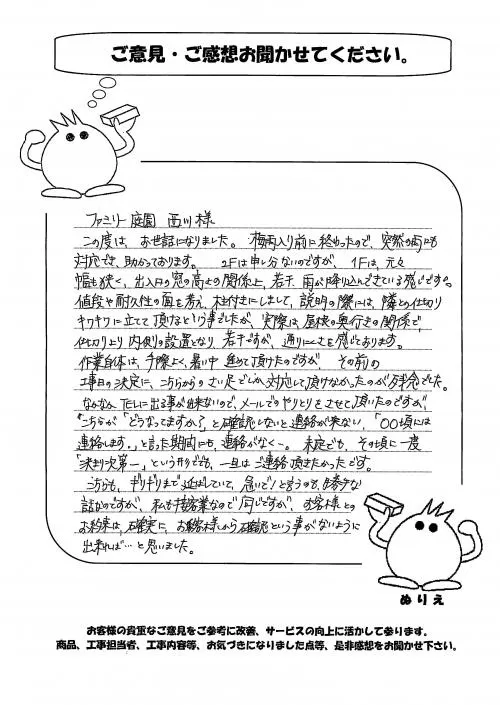 ご意見・ご感想お聞かせてください。
ファミリー庭園 西川様
この度は、お世話になりました。梅雨入り前に終わったので、突然の雨にも
対応でき、助かっております。 2Fは申し分ないのですが、1Fは、元々
幅も狭く、出入口の窓の高さの関係上、若干、雨が降り込んできている感じです。
値段や耐久性の面を考え、柱付きにしまして、説明の際には、隣との仕切り
ギリギリに立てて頂けるという事でしたが、実際は、屋根の奥行きの関係で、
仕切りより内側の設置となり、若干ですが、通りにくさを感じております。
作業自体は、手際よく、暑い中進めて頂けたのですが、その前の
工事日の決定に、こちらからのさい足でしか対応して頂けなかったのが残念でした。
なかなかTELに出る事が出来ないので、メールでのやりとりをさせて頂いたのですが、
"こちらが「どうなってますか?」と確認しないと連絡が来ない、「〇〇頃には
連絡します。」と言った期間にも、連絡がなく…。未定でも、その頃に一度
「決まり次第…」という形ででも、一旦はご連絡頂きたかったです。
こちらも、ギリギリまで延ばしていて、急いで!と言うのも、勝手な
話なのですが、私も接客業なので同じですが、お客様との
お約束は、確実に、お客様から確認という事がないように
出来れば…と思いました。
ぬりえ
お客様の貴重なご意見をご参考に改善、サービスの向上に活かして参ります。
商品、工事担当者、工事内容等、お気づきになりました点等、是非感想をお聞かせ下さい。